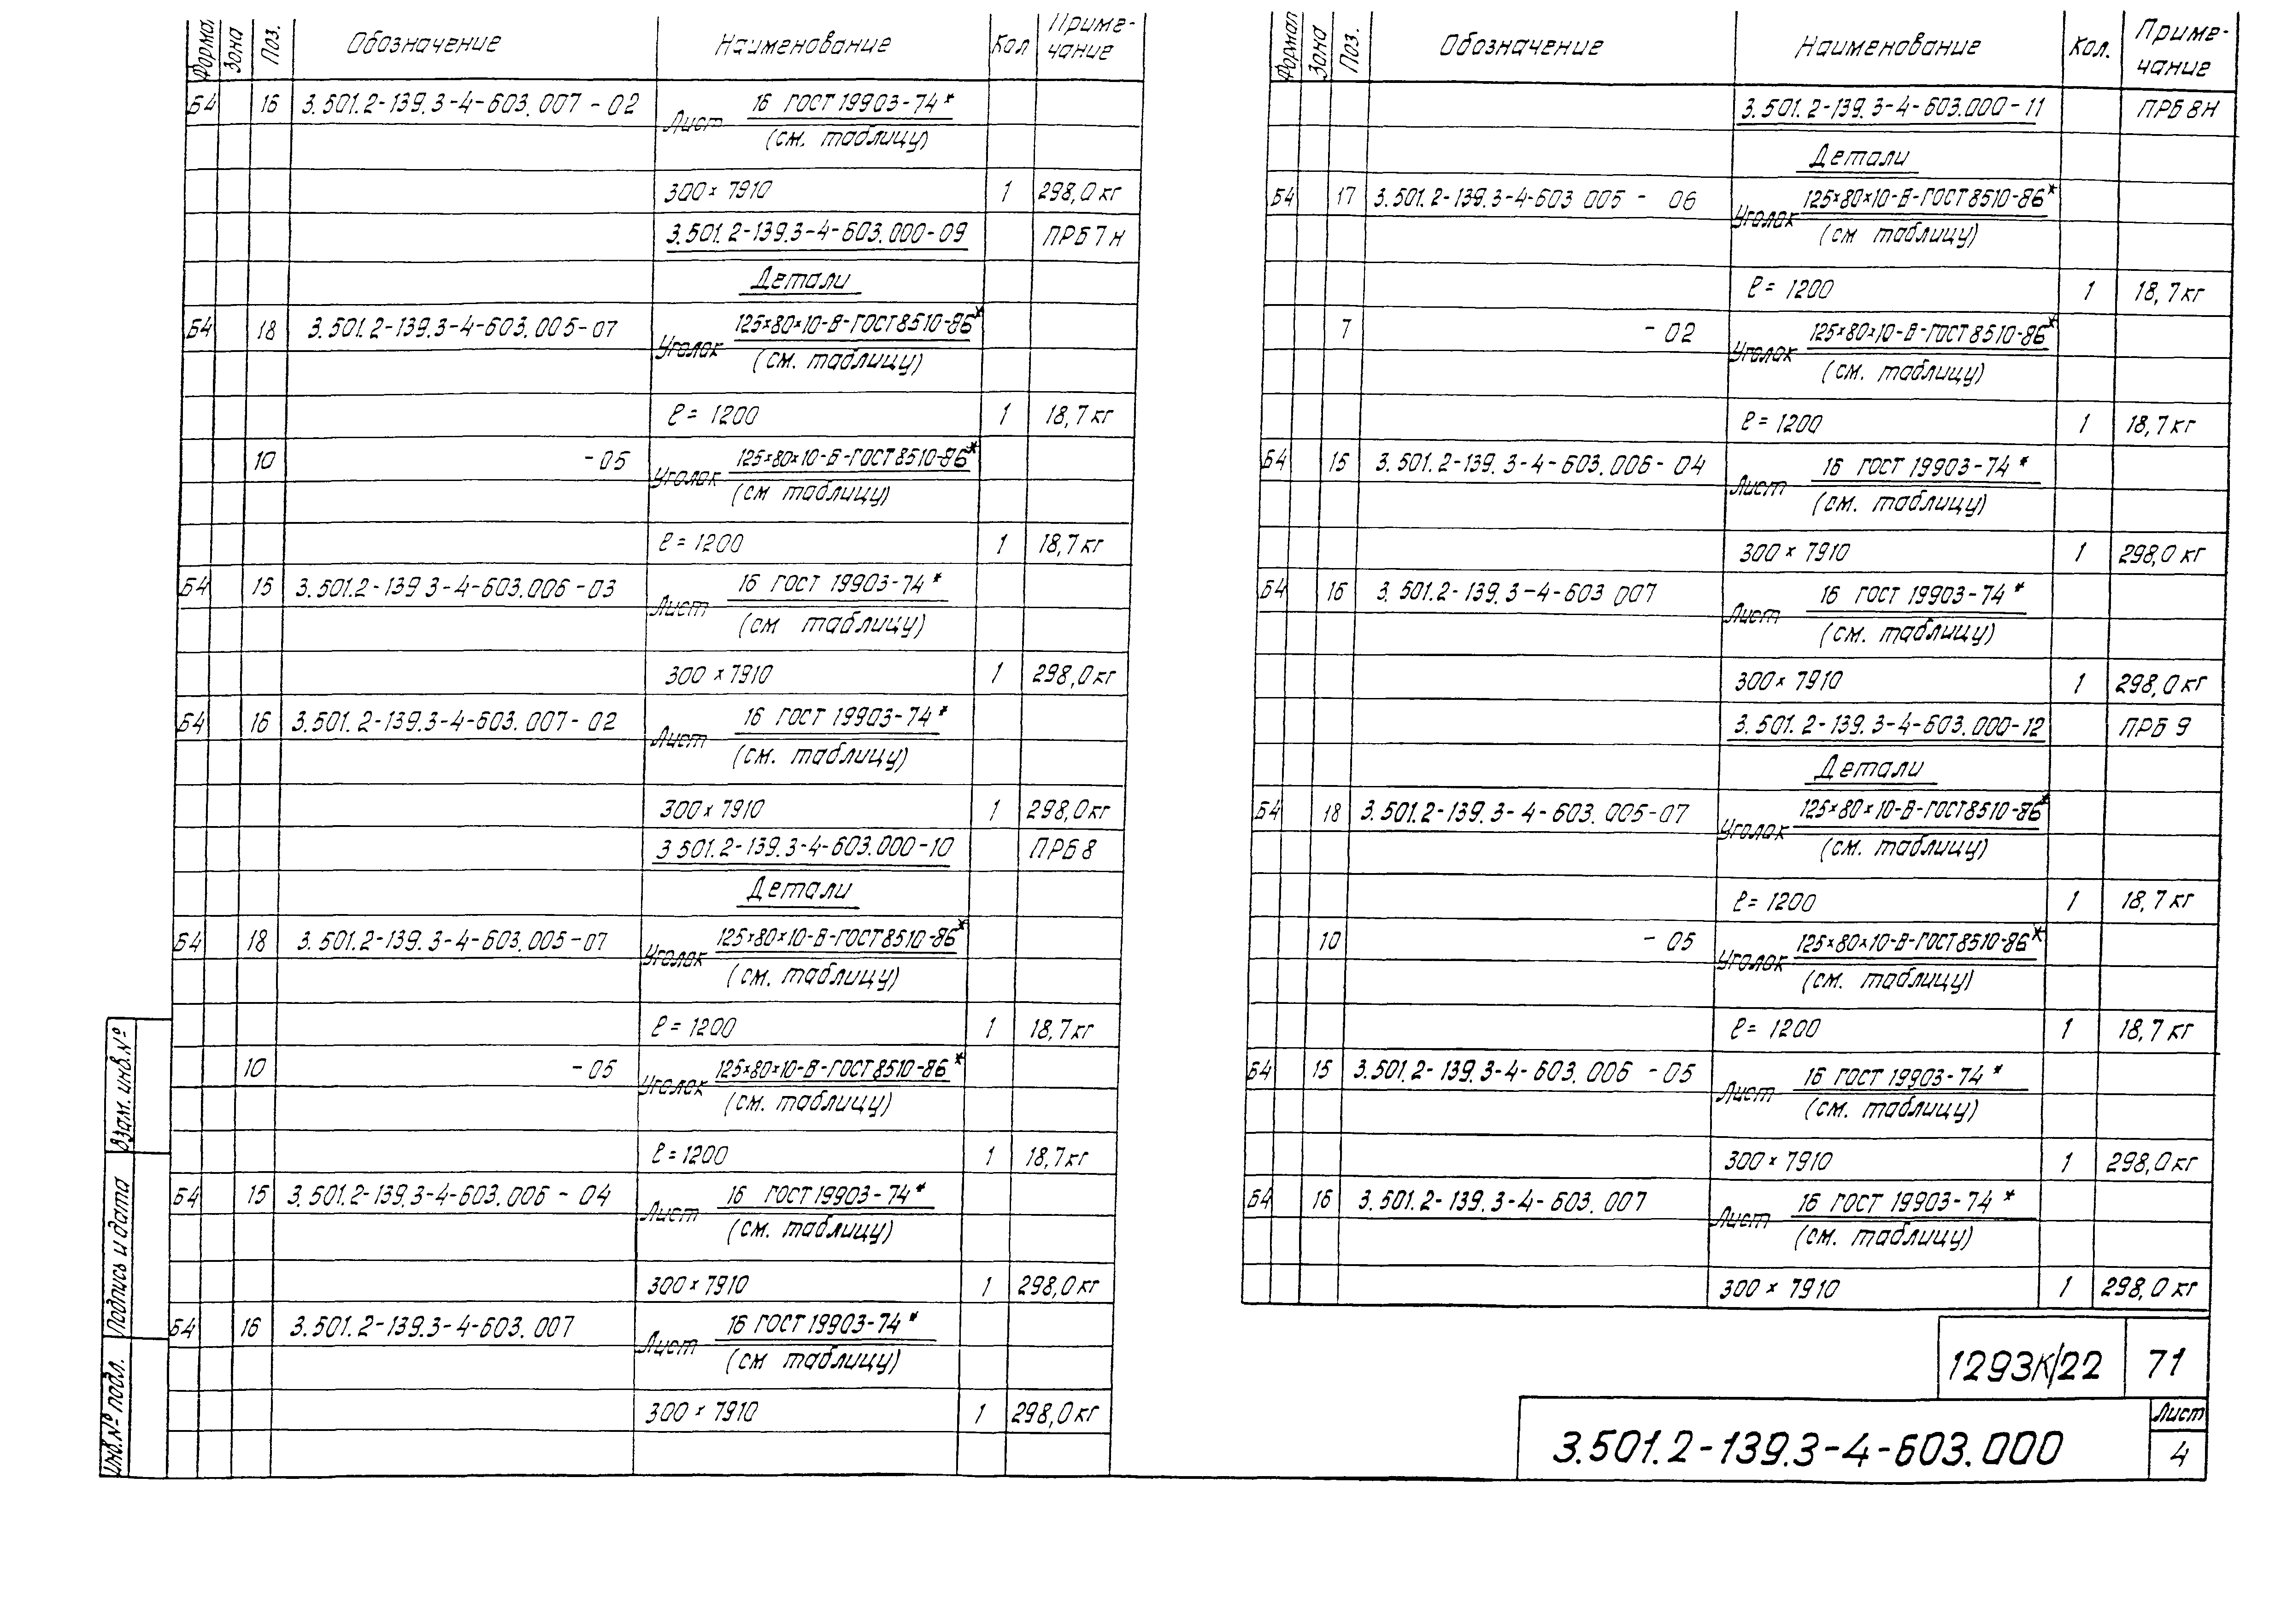 Формат Зона Поз. Обозначение Наименование Кол Приме-чание
Б4 16 3.501.2-139.3-4-603.007-02 Лист 16 ГОСТ 19903-74*
(см. таблицу)
300×7910 1 298,0 кг
3.501.2-139.3-4-603.000-09 ПРБ7н
Детали
Б4 18 3.501.2-139.3-4-603.005-07 Уголок 125×80×10-В-ГОСТ8510-86*
(см. таблицу)
ℓ=1200 1 18,7кг
10 -05 Уголок 125×80×10-Б-ГОСТ8510-86*
(см таблицу)
ℓ=1200 1 18,7кг
Б4 15 3.501.2-139 3-4-603.006-03 Лист 16 ГОСТ 19903-74*
(см таблицу)
300×7910 1 298,0кг
Б4 16 3.501.2-139.3-4-603.007-02 Лист 16 ГОСТ 19903-74*
(см. таблицу)
300×7910 1 298,0кг
3 501.2-139.3-4-603.000-10 ПРБ8
Детали
Б4 18 3.501.2-139.3-4-603.005-07 Уголок 125×80×10-В-ГОСТ8510-86*
(см. таблицу)
ℓ=1200 1 18,7кг
10 -05 Уголок 125×80×10-В-ГОСТ8510-86*
(см. таблицу)
ℓ=1200 1 18,7кг
Б4 15 3.501.2-139.3-4-603.006-04 Лист 16 ГОСТ19903-74*
(см. таблицу)
300×7910 1 298,0кг
Б4 16 3.501.2-139.3-4-603.007 Лист 16 ГОСТ 19903-74*
(см таблицу)
300×7910 1 298,0кг
Формат Зона Поз. Обозначение Наименование Кол. Приме-чание
3.501.2-139.3-4-603.000-11 ПРБ8Н
Детали
Б4 17 3.501.2-139.3-4-603 005-06 Уголок 125×80×10-В-ГОСТ8510-86*
(см таблицу)
ℓ=1200 1 18,7кг
7 -02 Уголок 125×80×10-В-ГОСТ8510-86*
(см. таблицу)
ℓ=1200 1 18,7кг
Б4 15 3.501.2-139.3-4-603.006-04 Лист 16 ГОСТ 19903-74*
(см. таблицу)
300×7910 1 298,0кг
Б4 16 3.501.2-139.3-4-603 007 Лист 16 ГОСТ 19903-74*
(см. таблицу)
300×7910 1 298,0кг
3.501.2-139.3-4-603.000-12 ПРБ 9
Детали
Б4 18 3.501.2-139.3-4-603.005-07 Уголок 125×80×10-В-ГОСТ8510-86*
(см. таблицу)
ℓ=1200 1 18,7кг
10 -05 Уголок 125×80×10-В-ГОСТ8510-86*
(см. таблицу)
ℓ=1200 1 18,7кг
Б4 15 3.501.2-139.3-4-603.006-05 Лист 16 ГОСТ 19903-74*
(см. таблицу)
300×7910 1 298,0кг
Б4 16 3.501.2-139.3-4-603.007 Лист 16 ГОСТ 19903-74*
(см. таблицу)
300×7910 1 298,0кг
Взам. инв.№
Подпись и дата
Инв.№ подл.
1293К/22 71
3.501.2-139.3-4-603.000
Лист
4